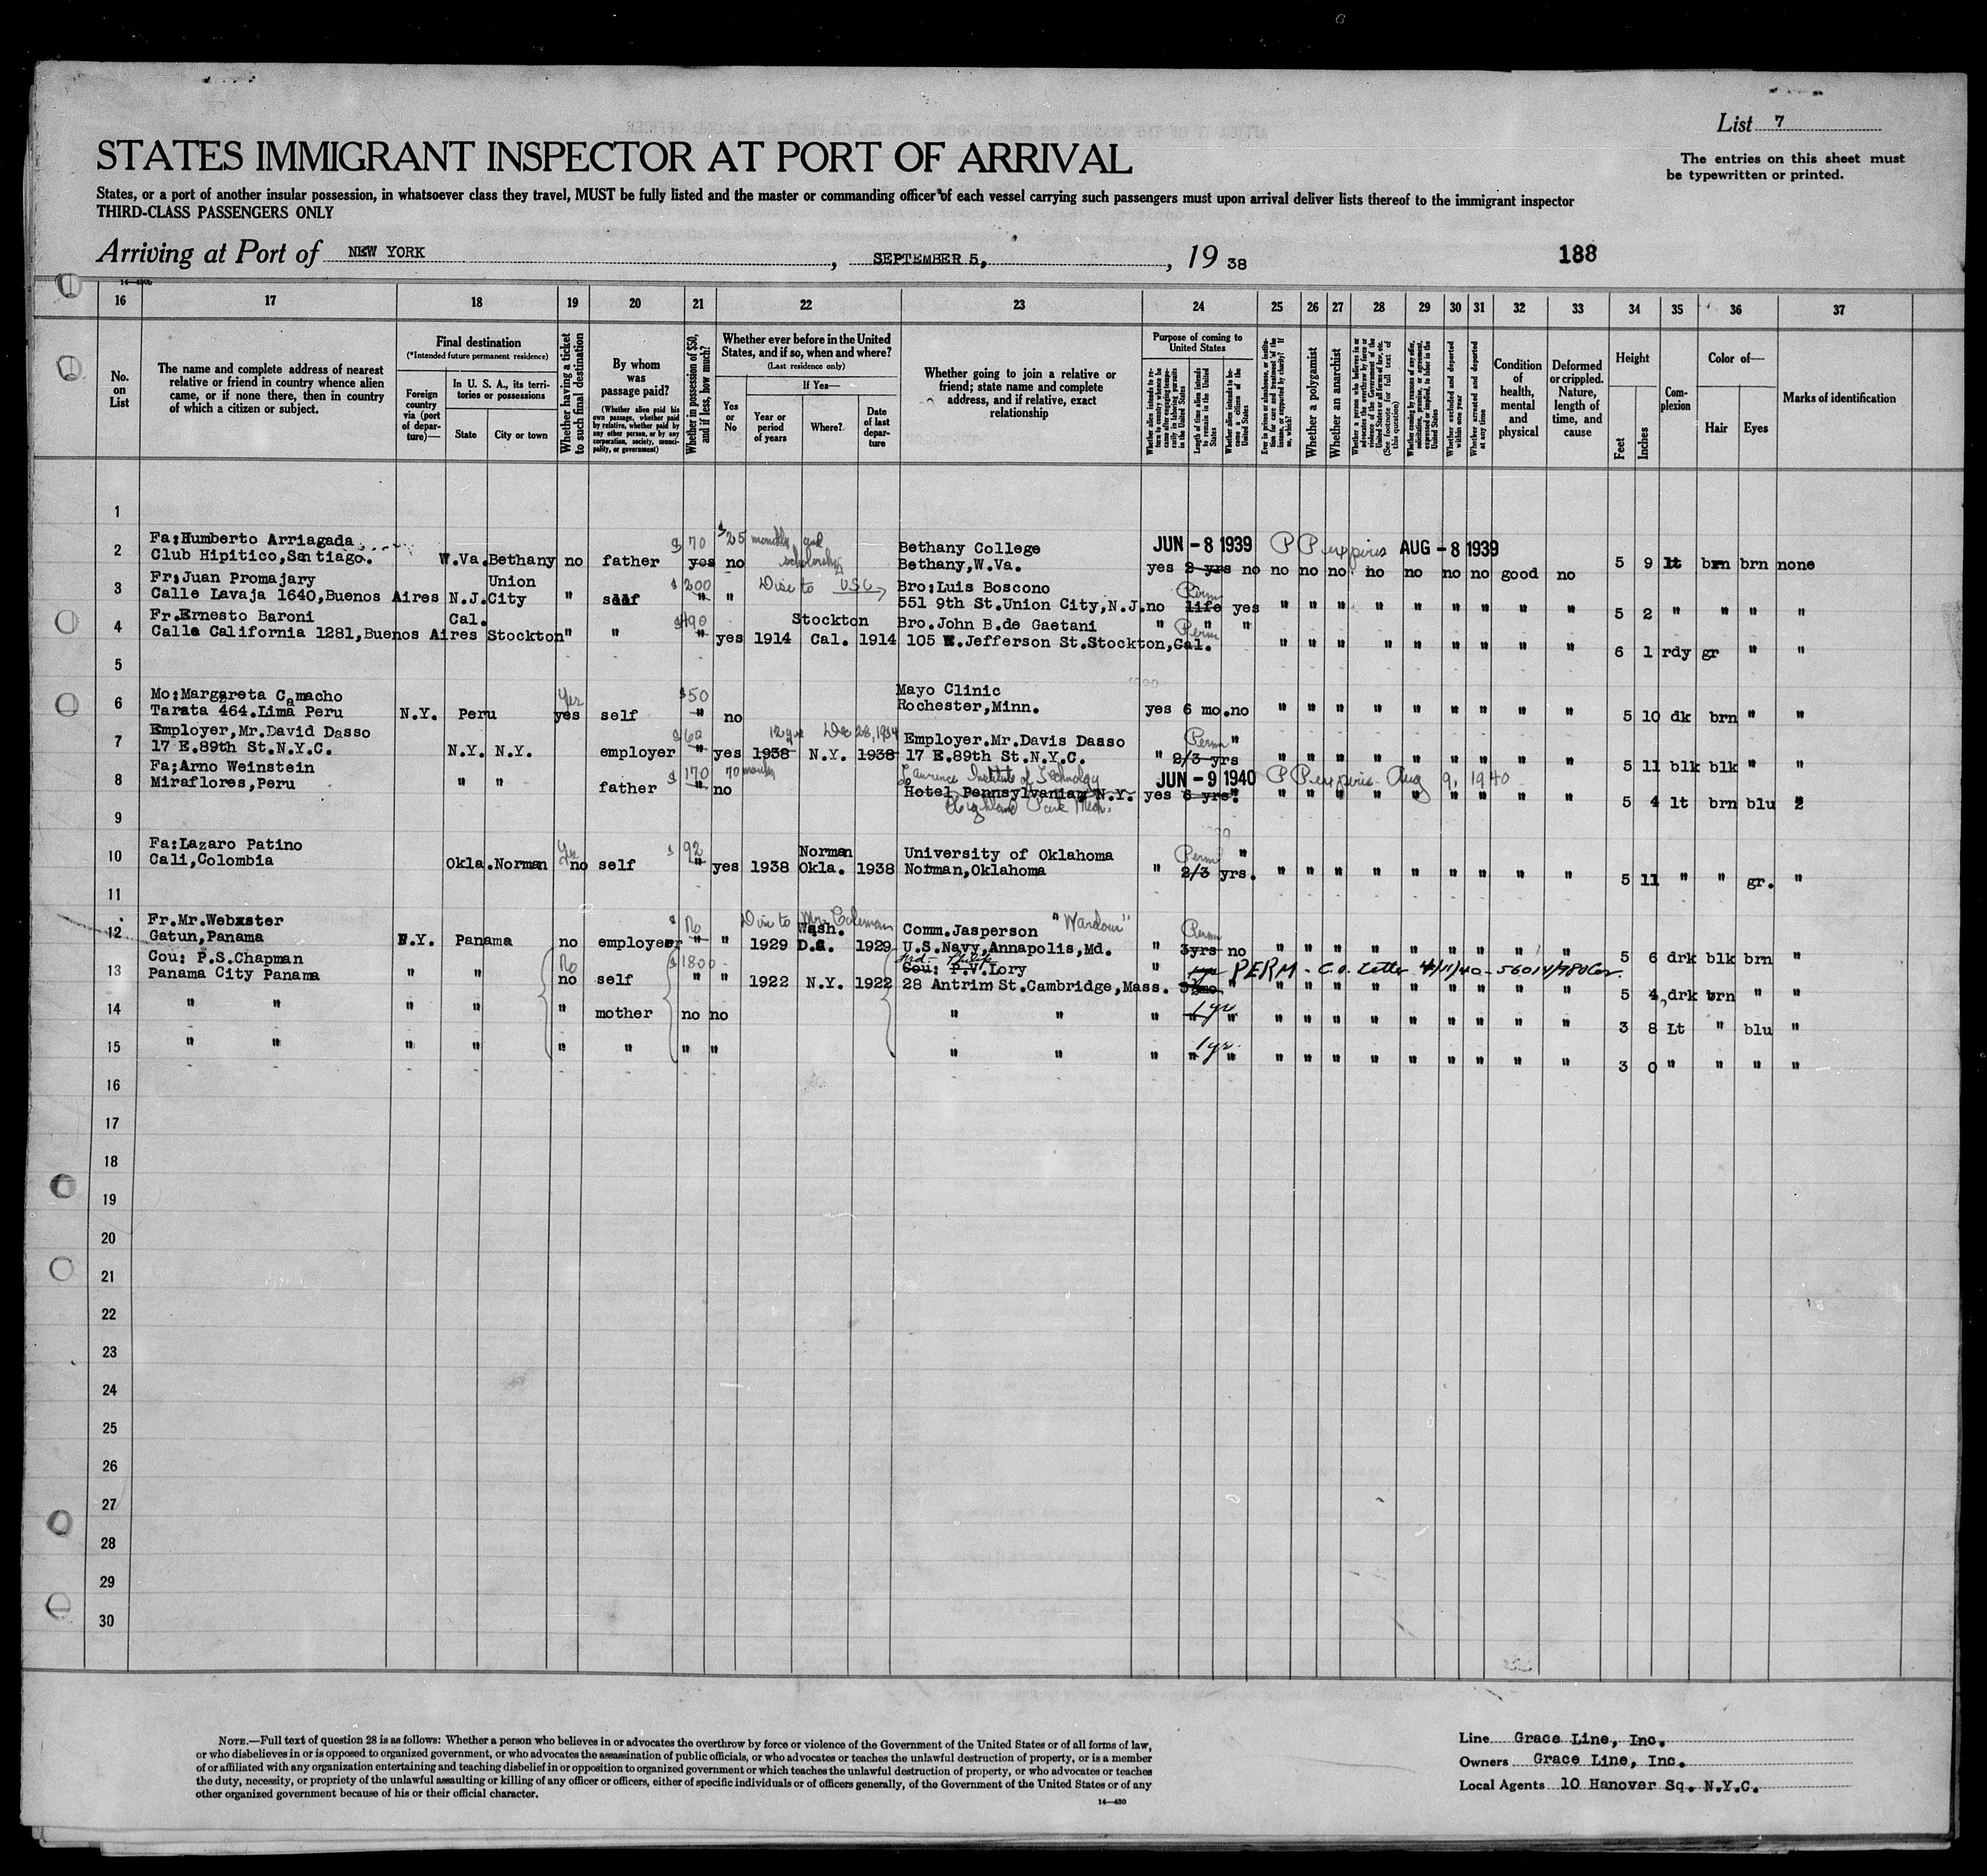 List 7
The entries on this sheet must
be typewritten or printed.
STATES IMMIGRANT INSPECTOR AT PORT OF ARRIVAL
States, or a port of another insular possession, in whatsoever class they travel, MUST be fully listed and the master or commanding officer of each vessel carrying such passengers must upon arrival deliver lists thereof to the immigrant inspector
THIRD-CLASS PASSENGERS ONLY
Arriving at Port of NEW YORK, SEPTEMBER 5, 1938
188
16 17 18 19 20 21 22 23 24 25 26 27 28 29 30 31 32 33 34 35 36 37
No. on List
The name and complete address of nearest
relative or friend in country whence alien
came, or if none there, then in country
of which a citizen or subject.
Final destination
(*Intended future permanent residence)
Foreign country via (port of departure)—
In U. S. A., its territories or possessions
State
City or town
Whether having a ticket to such final destination
By whom was passage paid?
(Whether alien paid his own passage, whether paid by relative, whether paid by any other person, or by any corporation, society, municipality, or government)
Whether in possession of $50, and if less, how much?
Whether ever before in the United States, and if so, when and where?
(Last residence only)
Yes or No
If Yes—
Year or period of years
Where?
Date of last departure
Whether going to join a relative or
friend; state name and complete
address, and if relative, exact
relationship
Purpose of coming to United States
Length of time alien intends to remain in the United States
Whether alien intends to become a citizen of the United States
Whether a polygamist
Whether an anarchist
Whether excluded and deported within one year
Whether arrested and deported at any time
Condition of health, mental and physical
Deformed or crippled. Nature, length of time, and cause
Height
Feet
Inches
Complexion
Color of—
Hair
Eyes
Marks of identification
1
2 Fa:Humberto Arriagada $70 $25 monthly and scholarship Bethany College JUN - 8 1939 PP expires AUG - 8 1939
Club Hipitico,Santiago. W.Va. Bethany no father yes no Bethany,W.Va. yes 2 yrs no no no no no no no no good no 5 9 lt brn brn none
3 Fr:Juan Promajary Union $200 Bro:Luis Boscono Perm
Calle Lavaja 1640,Buenos Aires N.J. City " self " " 551 9th St.Union City,N.J. no life yes " " " " " " " " " 5 2 " " " "
4 Fr.Ernesto Baroni Cal. $190 Stockton Bro.John B.de Gaetani " " " Perm
Calle California 1281,Buenos Aires Stockton " " " yes 1914 Cal. 1914 105 W.Jefferson St.Stockton,Cal. " " " " " " " " " 6 1 rdy gr " "
5
6 Mo:Margareta Camacho Yes $50 Mayo Clinic
Tarata 464.Lima Peru N.Y. Peru yes self " no Rochester,Minn. yes 6 mo. no " " " " " " " " " 5 10 dk brn " "
7 Employer,Mr.David Dasso $60 Dec 28, 1934 Employer.Mr.Davis Dasso Perm "
17 E.89th St.N.Y.C. N.Y. N.Y. employer " yes 1938 N.Y. 1938 17 E.89th St.N.Y.C. " 2/3 yrs " " " " " " " " " 5 11 blk blk " "
8 Fa;Arno Weinstein $170 Lawrence Institute of Technology JUN - 9 1940 PP expires Aug 9, 1940
Miraflores,Peru " " father " no Hotel Pennsylvania, N.Y. yes 6 yrs. " " " " " " " " " " 5 4 lt brn blu 2
Highland Park Mich.
9
10 Fa:Lazaro Patino Yes $92 Norman University of Oklahoma Perm "
Cali,Colombia Okla. Norman no self " yes 1938 Okla. 1938 Norman,Oklahoma " 2/3 yrs. " " " " " " " " " 5 11 " " gr. "
11
12 Fr.Mr.Webxster $ No Mr. Coleman Wash. Comm.Jasperson Perm
Gatun,Panama N.Y. Panama no employer " " 1929 D.C. 1929 U.S.Navy,Annapolis,Md. " 3yrs no " " " " " " " " " 5 6 drk blk brn "
13 Cou: P.S.Chapman No $1800 Cou: P.V.Lory " 1yr PERM - C.O. Letter 4/11/40 -
Panama City Panama " " no self " " 1922 N.Y. 1922 28 Antrim St.Cambridge,Mass. " " " " " " " " " " 5 4 drk brn " "
14 " " " " " mother no no " " " 1 yr " " " " " " " " " " 3 8 Lt " blu "
15 " " " " " " " " " " " 1 yr. " " " " " " " " " " 3 0 " " " "
16
17
18
19
20
21
22
23
24
25
26
27
28
29
30
NOTE.—Full text of question 28 is as follows: Whether a person who believes in or advocates the overthrow by force or violence of the Government of the United States or of all forms of law,
or who disbelieves in or is opposed to organized government, or who advocates the assassination of public officials, or who advocates or teaches the unlawful destruction of property, or is a member
of or affiliated with any organization entertaining and teaching disbelief in or opposition to organized government or which teaches the unlawful destruction of property, or who advocates or teaches
the duty, necessity, or propriety of the unlawful assaulting or killing of any officer or officers, either of specific individuals or of officers generally, of the Government of the United States or of any
other organized government because of his or their official character.
14—430
Line Grace Line, Inc.
Owners Grace Line, Inc.
Local Agents 10 Hanover Sq. N.Y.C.